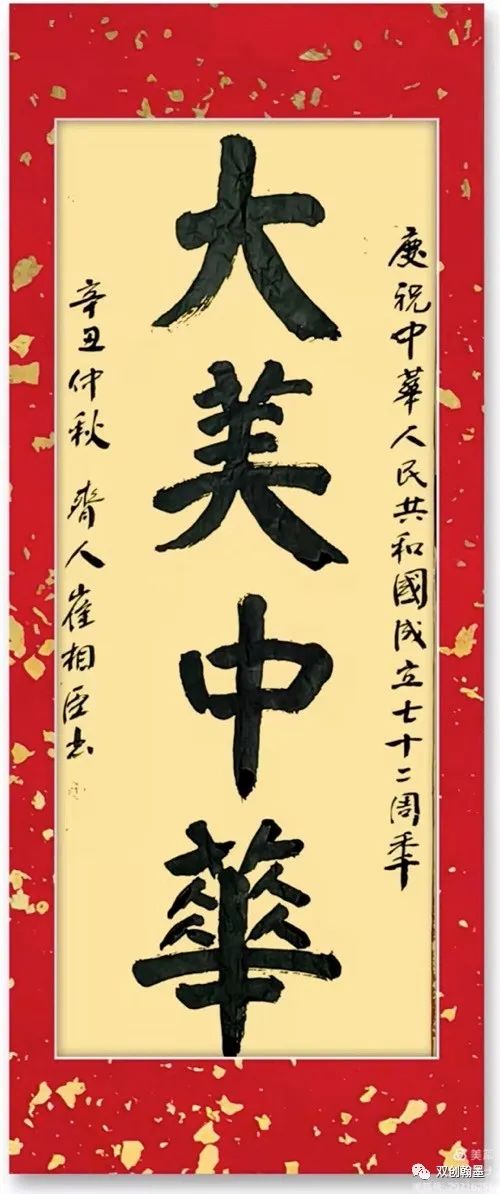 慶祝中華人民共和國成立七十二周年
大美中華
辛丑仲秋 齊人崔相臣书
双创翰墨